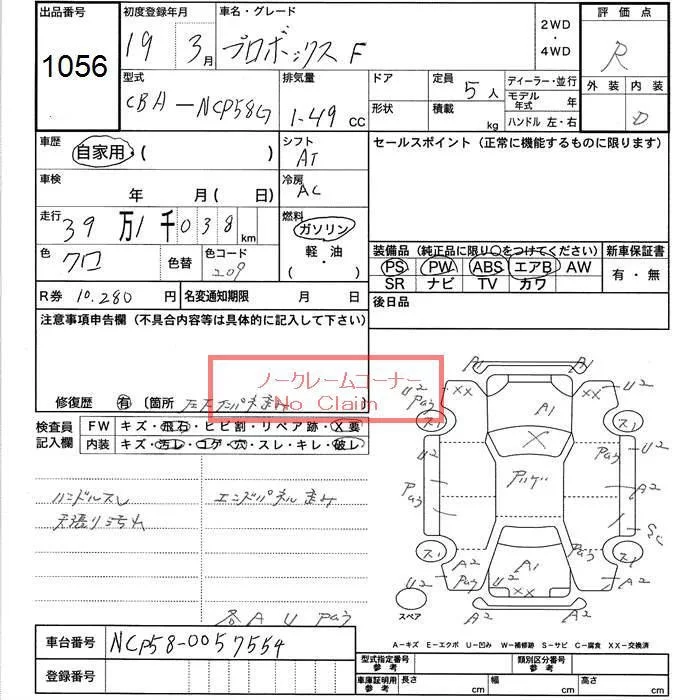 出品番号 初度登録年月 車名・グレード 2WD・4WD 評価点
1056 19 3月 プロボックス F R
型式 排気量 ドア 定員 5人 ディーラー・並行 外装 内装
CBA-NCP58G 1.49 CC 形状 積載 kg モデル年式 年 D
ハンドル 左・右
車歴 自家用・( ) シフト AT セールスポイント(正常に機能するものに限ります)
車検 年 月( 日) 冷房 AC
走行 39万1千038km 燃料 ガソリン・軽油 ( )
色 クロ 色替 色コード 209
装備品(純正品に限り○をつけてください) 新車保証書
PS PW ABS エアB AW 有・無
SR ナビ TV カワ
R券 10.280円 名変通知期限 月 日 後日品
注意事項申告欄(不具合内容等は具体的に記入して下さい)
ノークレームコーナー
No Claim
修復歴 有 〔箇所
検査員記入欄 FW キズ・飛石・ヒビ割・リペア跡・X要
内装 キズ・汚レ・コゲ・穴・スレ・キレ・破レ
ハンドルスレ エンドパネルまげ
天張り汚れ
各 A U Pゥ
A1 A1
U2 XX XX U2
Pゥ A1
ス1 ス1
U2 X Pゥ U2
Pゥ A2
ス1 Pゥ ス1
A2 A1 A2
U2 Pゥ U2 XX XX A2
スペア A2 A2
車台番号 NCP58-0057554
A-キズ E-エクボ U-凹み W-補修跡 S-サビ C-腐食 XX-交換済
登録番号
型式指定番号 参考 類別区分番号 参考
車庫証明用 参考 長さ cm 幅 cm 高さ cm